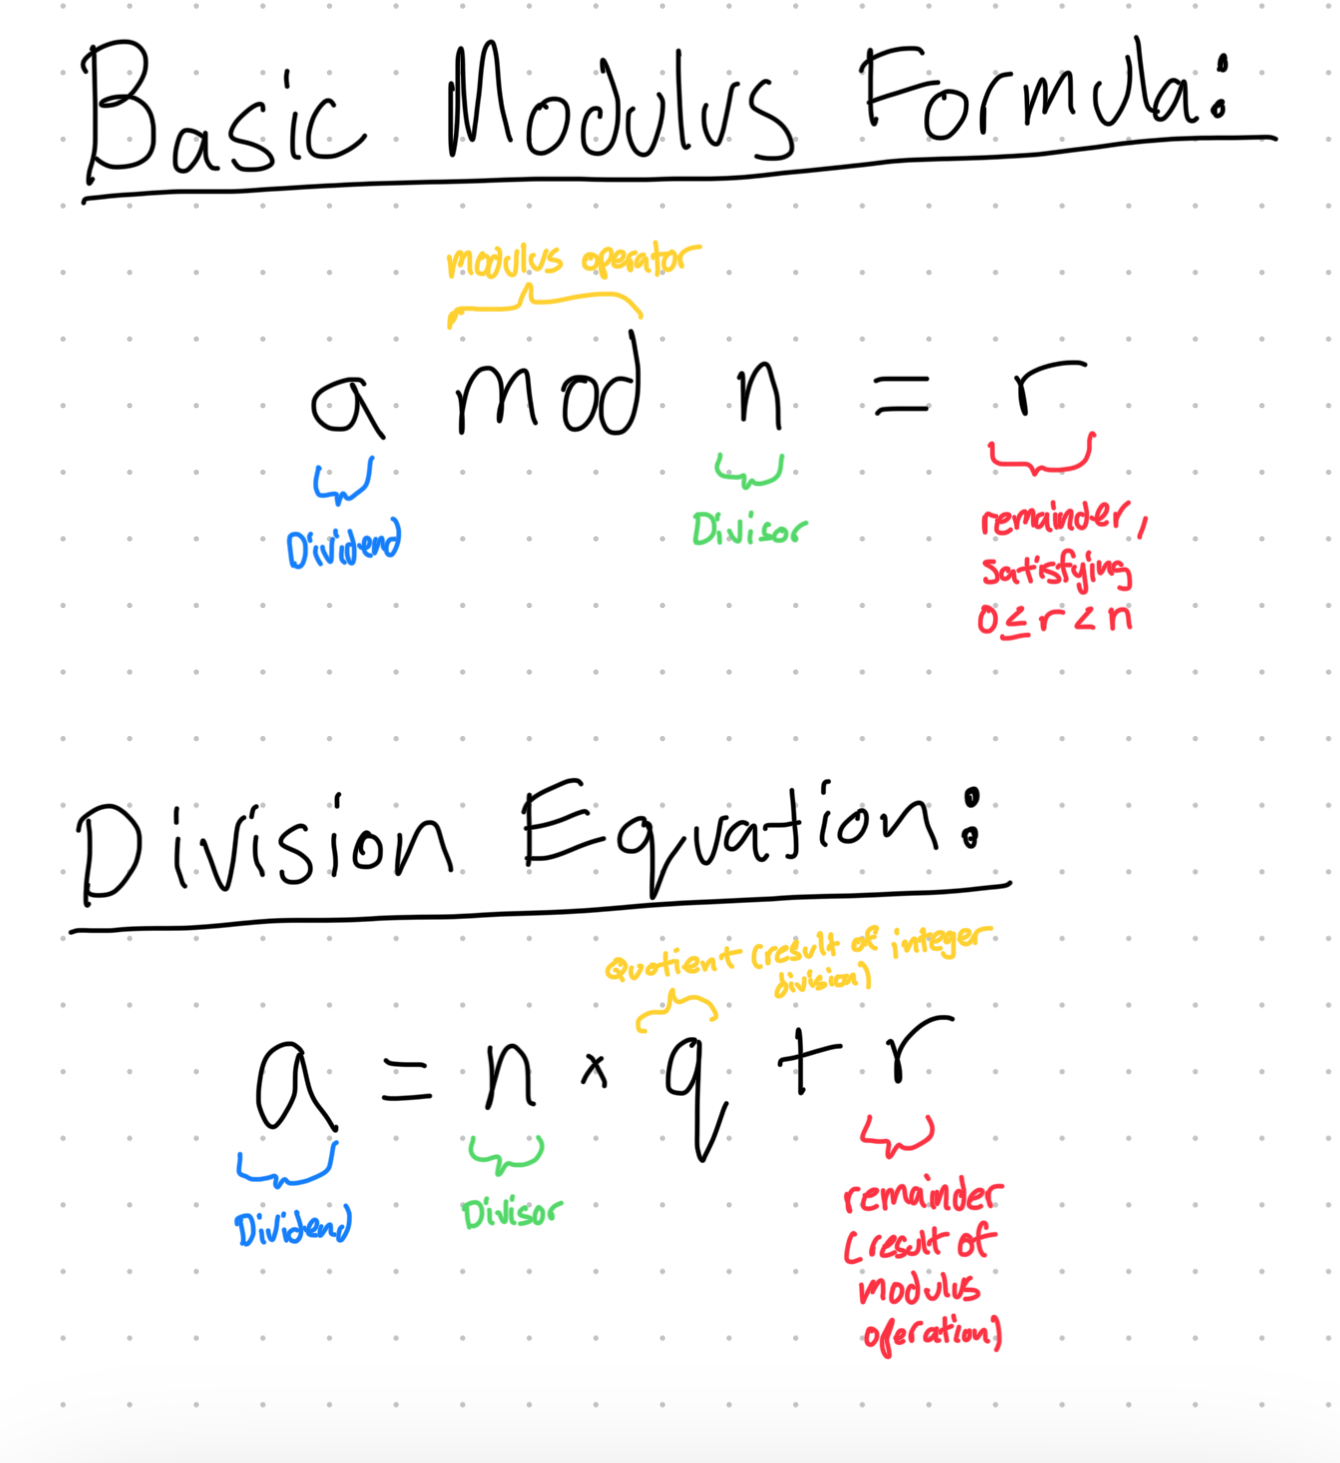 Basic Modulus Formula:
modulus operator
a mod n = r
Dividend
Divisor
remainder,
satisfying
0 ≤ r < n
Division Equation:
Quotient (result of integer
division)
a = n × q + r
Dividend
Divisor
remainder
(result of
modulus
operation)